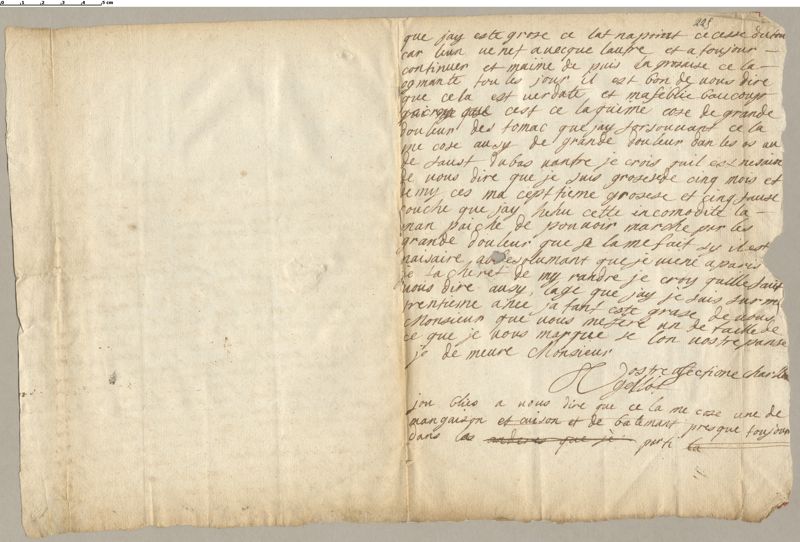 0 1 2 3 4 5 cm
225
que jay este grose ce lat napoint cecesse du tou
car lun venet avecque laustre et a toujour —
continuer et maime de puis la grosaise ce la —
ogmante tou les jour il est bon de vous dire
que ce la est verdate et mafeblie baucoup
cest ce la quime cose de grande
douleur des tomac que jay sorsouvant ce la
me cose ausy de grande douleur dan les os au
de faust du bas vantre je crois quil est nesaire
de vous dire que je suis grosesde cinq mois et
demy ces ma cepttieme grosese et cinq fause
couche que jay hehu cette incomodite la —
man paiche de pouvoir marche par les
grande douleur que sa la me fait sy il est
naisaire absesolumant que je viene a paris
je la cheret de my randre je croy quille faut
vous dire ausy lage que jay je suis sur m
trentieme anee jatant este grase de vous
Monsieur que vous mesere un detaille de
ce que je vous marque se lon vostre panse
je de meure Monsieur
Vostre afectione
jou blies a vous dire que ce la me cose une de
mangaison et cuison et de batemant presque toujour
dans les que je parti la